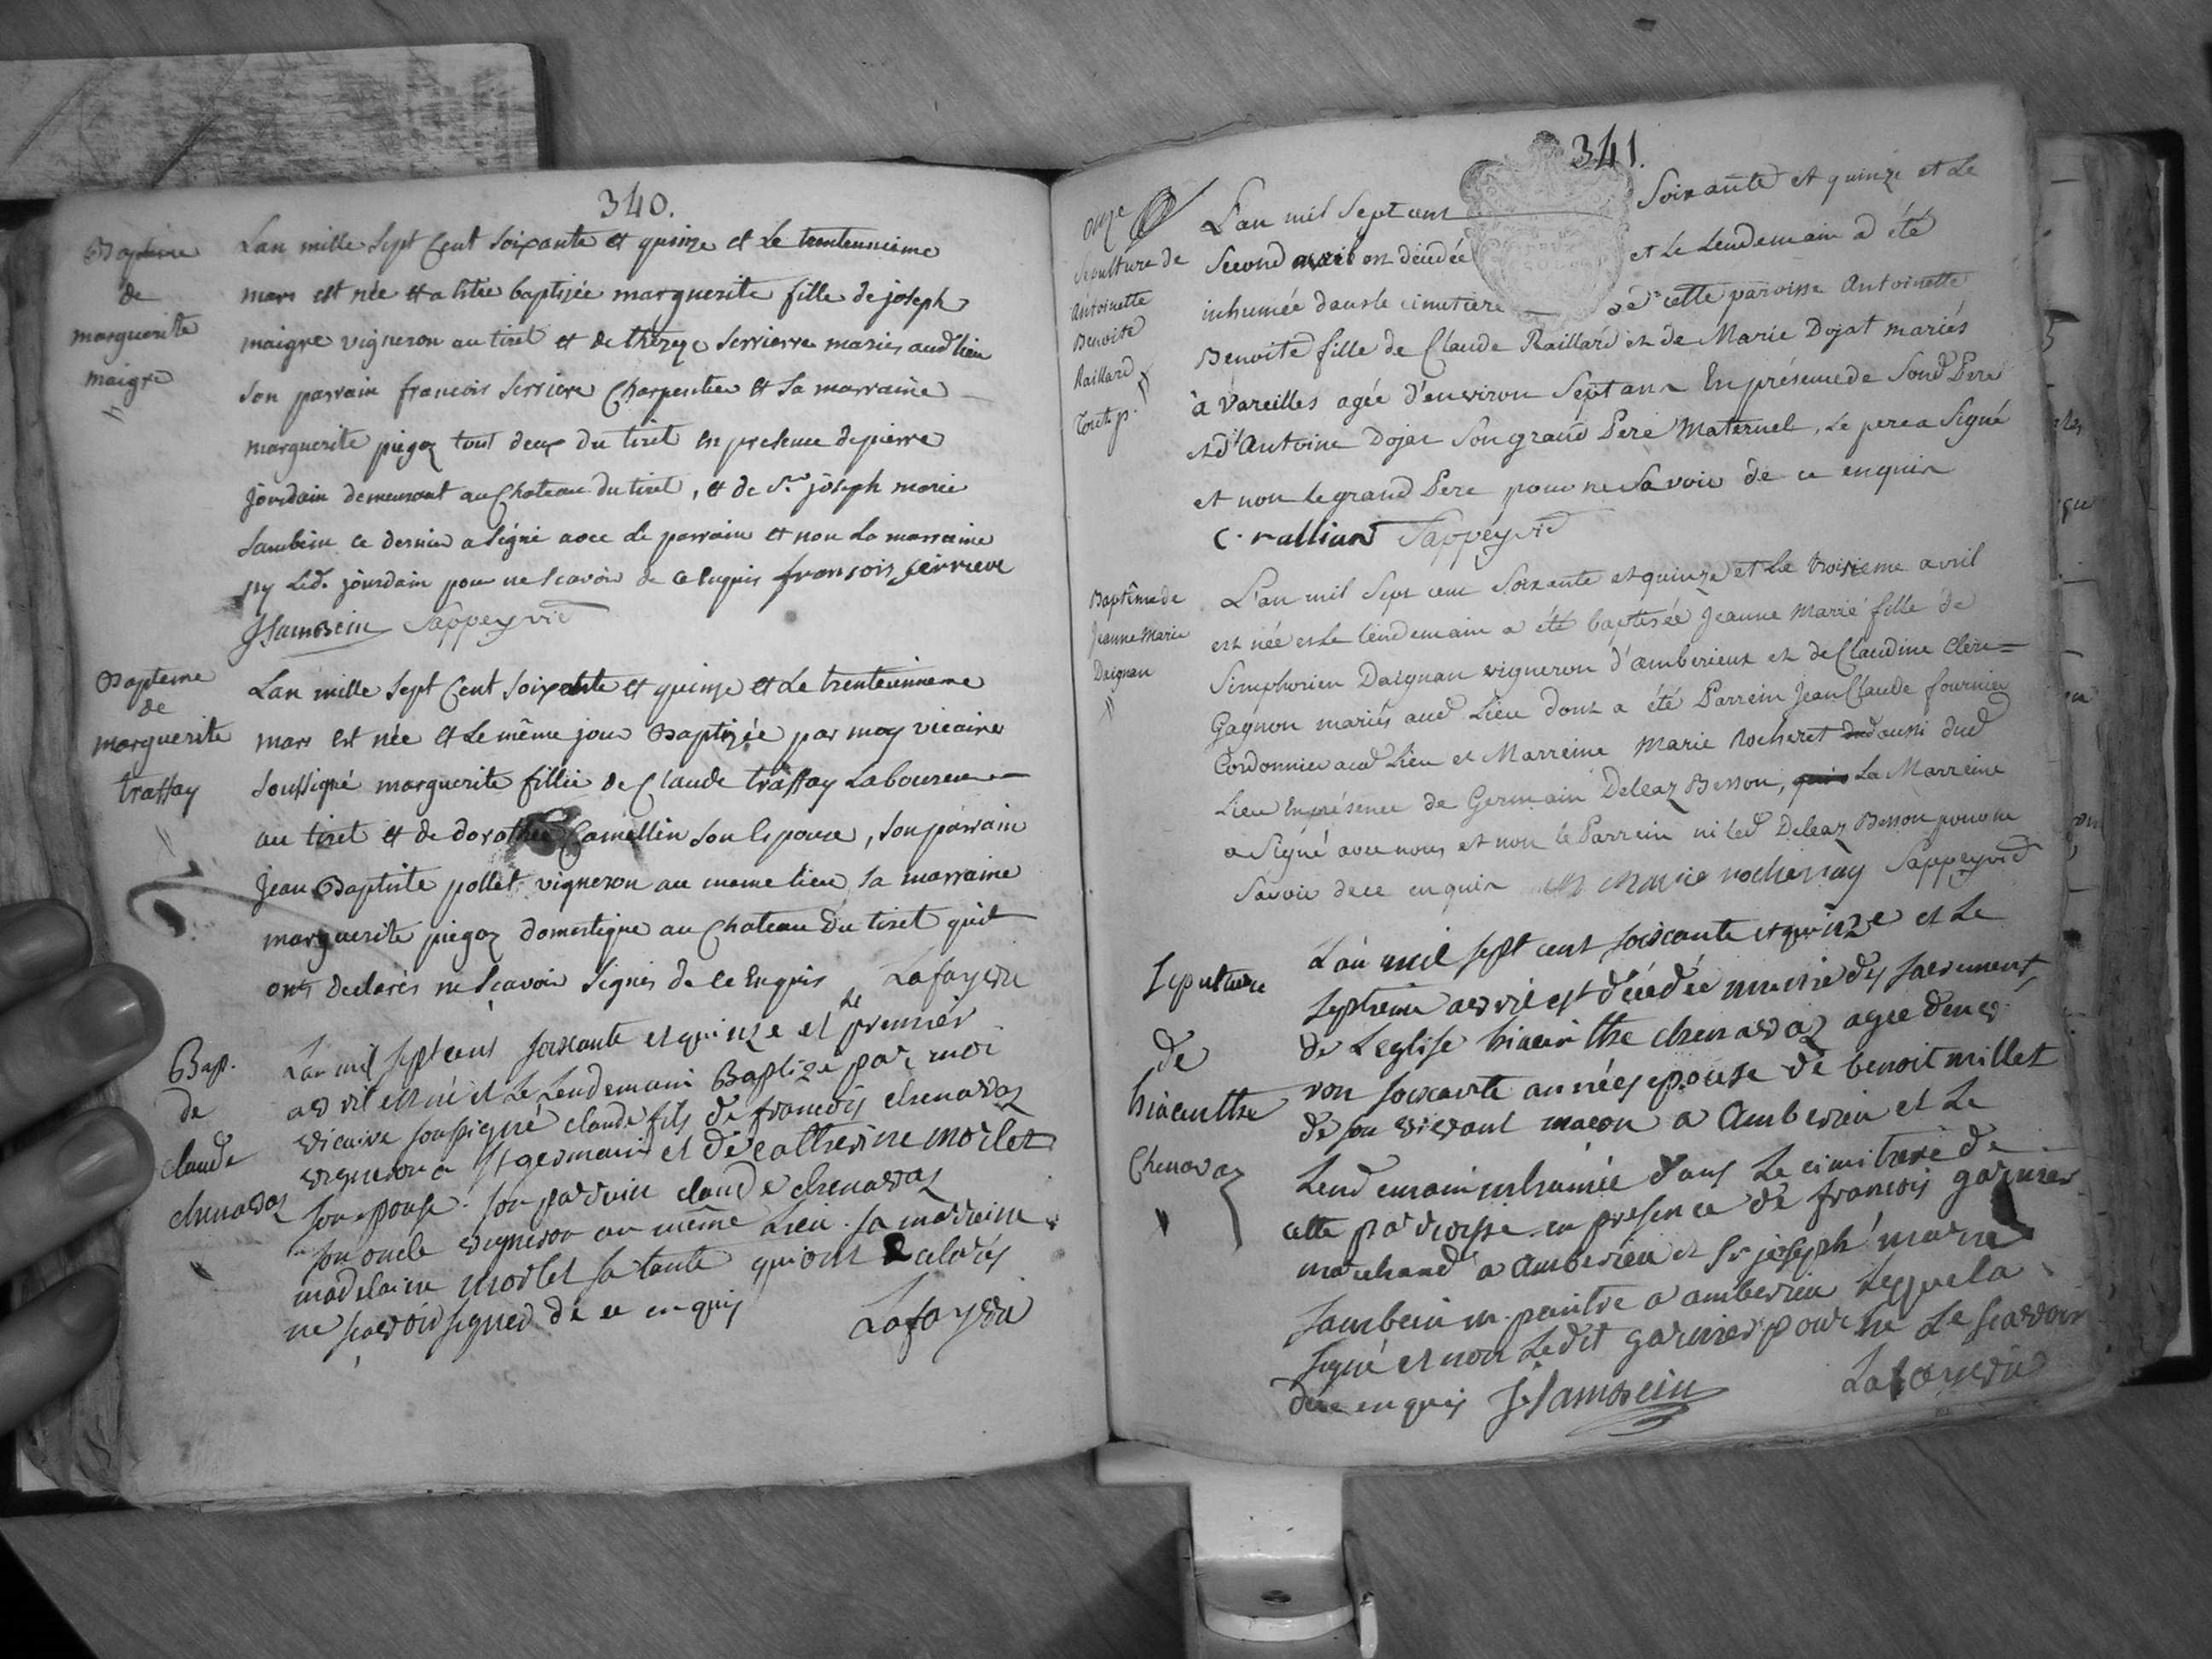 340.
Baptême
de
marguerite
maigre
Lan mille sept Cent soixante et quinze et Le trenteunieme
mars est née et a étée baptisée marguerite fille de joseph
maigre vigneron au tiret et de thereze serriere mariés aud lieu
son parrain francois serriere Charpentier et sa marraine
marguerite piegoz tout deux du tiret en presence de pierre
jourdain demeurant au Chateau du tiret, et de Sr joseph marie
Sambein ce dernier a signé avec le parrain et non la marraine
ny Led. jourdain pour ne scavoir de ce enquis fransois serriere
JSambein Sappeyvid
Bapteme
de
marguerite
traffay
Lan mille sept Cent soixante et quinze et Le trenteunieme
mars est née et Le même jour Baptizée par moy vicaire
soussigné marguerite fillie de Claude traffay Laboureur
au tiret et de dorothée Camellin son Epouse, son parrain
Jean Baptiste pollet vigneron au meme lieu sa marraine
marguerite piegoz domestique au Chateau du tiret quil
onts declarés ne scavoir signés de ce Enquis Lafayeru
Bap.
de
claude
chenavaz
Lan mil sept cent soixante et quinze et le premier
avril est né et Le Lendemain Baptizé par moi
vicaire soussigné claude fils de francois chenavaz
vigneron a st germain et de catherine morlet
son epouse. son parrain claude chenavaz
son oncle vigneron au même Lieu. sa marreine
madelaine morlet sa tante qui ont declarés
ne scavoir signer de ce enquis Lafayeru
341.
onze
Sepulture de
Antoinette
Benoite
Raillard
L'an mil sept cent soixante et quinze et Le
second avril est décédée et le lendemain a été
inhumée dans le cimetiere de cette paroisse Antoinette
Benoite fille de Claude Raillard et de Marie Dojat mariés
à Vareilles agée d'environ sept ans En présence de sond Pere
et d'Antoine Dojat son grand Pere Maternel, Le pere a signé
et non le grand Pere pour ne Savoir de ce enquis
C. ralliard Sappeyvid
Baptême de
Jeanne Marie
Daignan
L'an mil sept cent soixante et quinze et Le troisieme avril
est née et le lendemain a été baptisée Jeanne Marie fille de
Simphorien Daignan vigneron d'amberieux et de Claudine Clere=
Gagnon mariés aud Lieu dont a été Parrein Jean Claude fournier
Cordonnier aud Lieu et Marreine Marie Rocheret dud aussi dud
Lieu En présence de Germain Deleaz Besson, qui a La Marreine
a Signé avec nous et non le Parrein ni led Deleaz Besson pour ne
Savoir de ce enquis Marie rocheray Sappeyvid
Sepulture
de
hiacinthe
Chenavaz
L'an mil sept cent soixante et quinze et Le
septieme avril est décédée munie des sacrements
de L'eglise hiacinthe chenavaz agée denvi
ron soixante années epouse de benoit millet
de son vivant macon a Amberieu et Le
Lendemain inhumée dans Le cimitiere de
cette parroisse en presence de francois garnier
marchand a amberieu et Sr joseph marie
Sambein m. peintre a amberieu Lequel a
signé et non Ledit garnier pour ne Le scavoir
de ce enquis JSambein Lafayeru